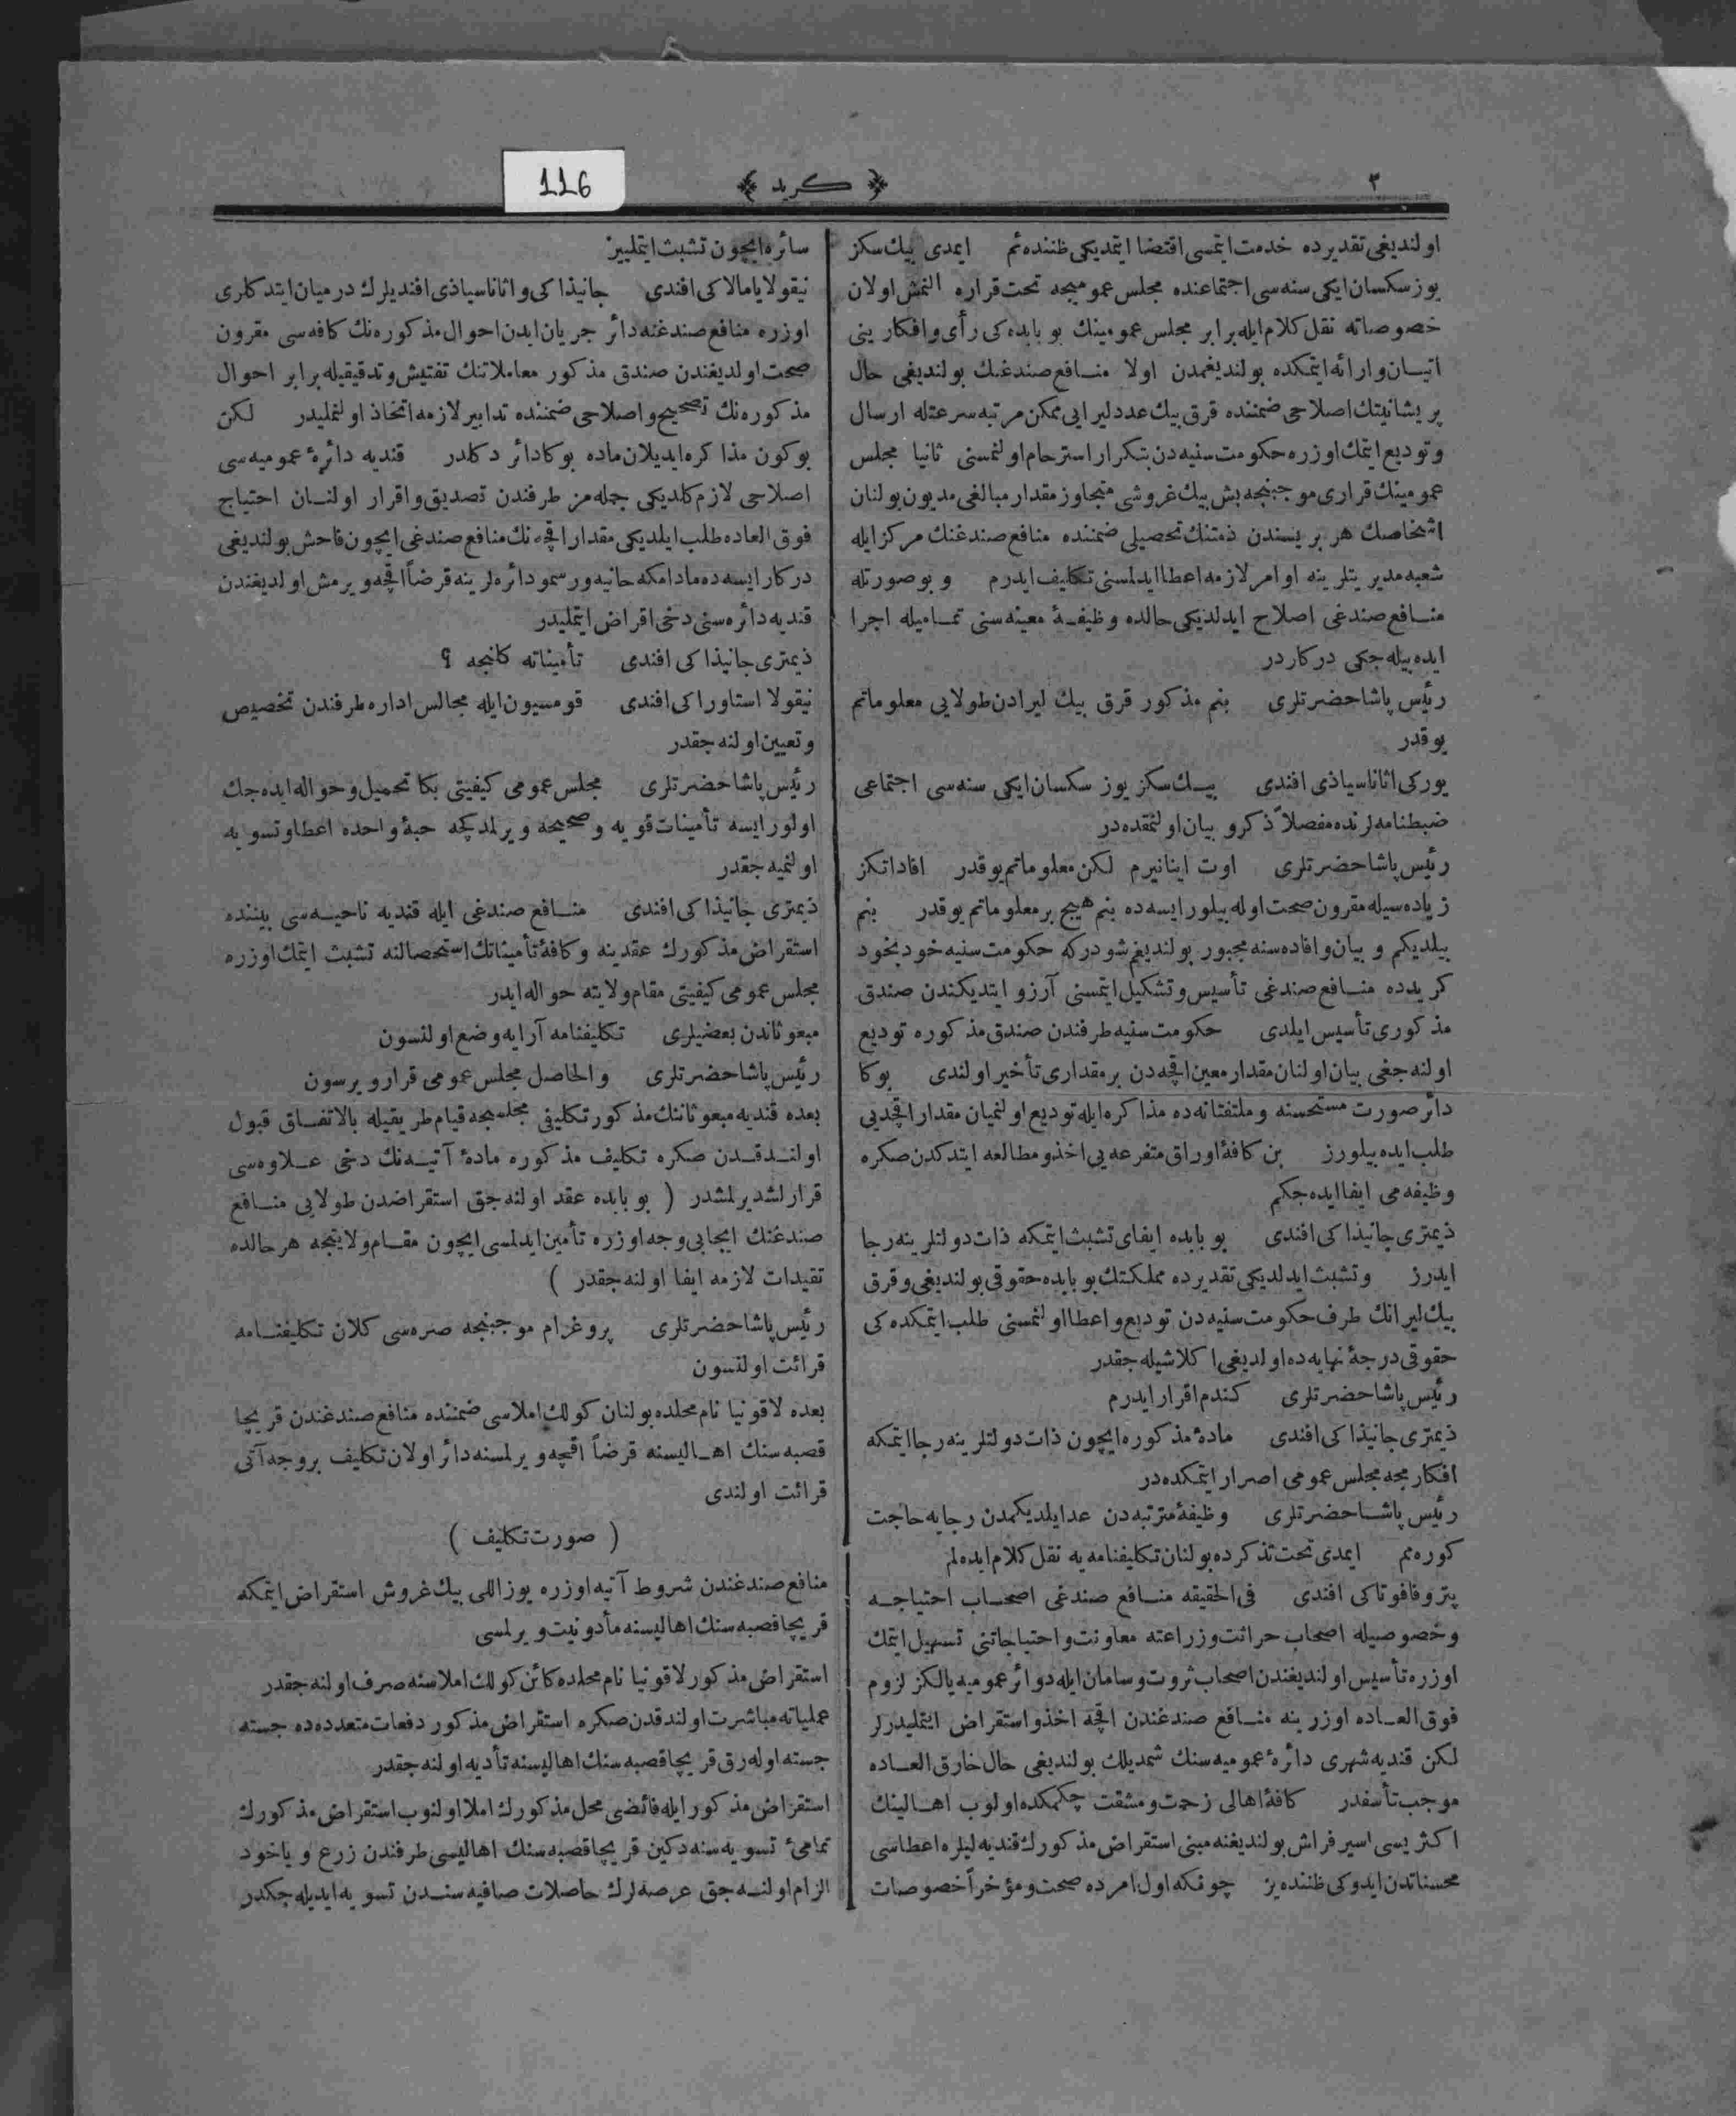 ٣
﴿ كريد ﴾
116
اولنديغی تقديرده خدمت ايتمسی اقتضا ايتديكی ظننده‌ئم ايمدی بيك سكز
يوز سكسان ايكی سنه‌سی اجتماعنده مجلس عموميجه تحت قراره النمش اولان
خصوصاته نقل كلام ايله برابر مجلس عمومينك بو بابده‌كی رأی و افكارينی
اتيان و ارائه ايتمكده بولنديغمدن اولا منافع صندغنك بولنديغی حال
پريشانيتك اصلاحی ضمننده قرق بيك عدد ليرايی ممكن مرتبه سرعتله ارسال
و توديع ايتمك اوزره حكومت سنيه‌دن بتكرار استرحام اولنمسنی ثانيا مجلس
عمومينك قراری موجبنجه بش بيك غروشی متجاوز مقدار مبالغی مديون بولنان
اشخاصك هر بريسندن ذمتنك تحصيلی ضمننده منافع صندغنك مركز ايله
شعبه مديريتلرينه اوامر لازمه اعطا ايدلمسنی تكليف ايدرم و بوصورتله
منافع صندغی اصلاح ايدلديكی حالده وظيفهٔ معينه‌سنی تماميله اجرا
ايده‌بيله‌جكی دركاردر
رئيس پاشا حضرتلری بنم مذكور قرق بيك ليرادن طولايی معلوماتم
يوقدر
يوركی اثاناسياذی افندی بيك سكز يوز سكسان ايكی سنه‌سی اجتماعی
ضبطنامه‌لرنده مفصلاً ذكر و بيان اولنمقده‌در
رئيس پاشا حضرتلری اوت اينانيرم لكن معلوماتم يوقدر افاداتكز
زياده‌سيله مقرون صحت اوله‌بيلور ايسه‌ده بنم هيچ بر معلوماتم يوقدر بنم
بيلديكم و بيان و افاده‌سنه مجبور بولنديغم شودركه حكومت سنيه خود بخود
كريدده منافع صندغی تأسيس و تشكيل ايتمسنی آرزو ايتديكندن صندق
مذكوری تأسيس ايلدی حكومت سنيه طرفندن صندق مذكوره توديع
اولنه‌جغی بيان اولنان مقدار معين اقچه‌دن بر مقداری تأخير اولندی بوكا
دائر صورت مستحسنه و ملتفتانه‌ده مذاكره ايله توديع اولنميان مقدار اقچه‌يی
طلب ايده‌بيلورز بن كافهٔ اوراق متفرعه‌يی اخذ و مطالعه ايتدكدن صكره
وظيفه‌می ايفا ايده‌جكم
ذيمتری جانيذاكی افندی بو بابده ايفای تشبث ايتمكه ذات دولتلرينه رجا
ايدرز و تشبث ايدلديكی تقديرده مملكتك بو بابده حقوقی بولنديغی و قرق
بيك ليرانك طرف حكومت سنيه‌دن توديع و اعطا اولنمسنی طلب ايتمكده‌كی
حقوقی درجهٔ نهايه‌ده اولديغی اكلاشيله‌جقدر
رئيس پاشا حضرتلری كندم اقرار ايدرم
ذيمتری جانيذاكی افندی مادهٔ مذكوره ايچون ذات دولتلرينه رجا ايتمكه
افكارمجه مجلس عمومی اصرار ايتمكده‌در
رئيس پاشا حضرتلری وظيفهٔ مترتبه‌دن عد ايلديكمدن رجايه حاجت
كوره‌مم ايمدی تحت تذكرده بولنان تكليفنامه‌يه نقل كلام ايده‌لم
پتروفافوتاكی افندی فی الحقيقه منافع صندغی اصحاب احتياجه
و خصوصيله اصحاب حراثت و زراعته معاونت و احتياجاتنی تسهيل ايتمك
اوزره تأسيس اولنديغندن اصحاب ثروت و سامان ايله دوائر عموميه يالكز لزوم
فوق العاده اوزرينه منافع صندغندن اقچه اخذ و استقراض ايتمليدرلر
لكن قنديه شهری دائرهٔ عموميه‌سنك شمديلك بولنديغی حال خارق العاده
موجب تأسفدر كافهٔ اهالی زحمت و مشقت چكمكده اولوب اهالينك
اكثريسی اسير فراش بولنديغنه مبنی استقراض مذكورك قنديه‌ليلره اعطاسی
محسناتدن ايدوكی ظننده‌يز چونكه اول امرده صحت و مؤخراً خصوصات
سائره ايچون تشبث ايتملييز
نيقولا ياماالاكی افندی جانيذاكی و اثاناسياذی افنديلرك درميان ايتدكلری
اوزره منافع صندغنه دائر جريان ايدن احوال مذكوره‌نك كافه‌سی مقرون
صحت اولديغندن صندق مذكور معاملاتنك تفتيش و تدقيقيله برابر احوال
مذكوره‌نك تصحيح و اصلاحی ضمننده تدابير لازمه اتخاذ اولنمليدر لكن
بوكون مذاكره ايديلان ماده بوكا دائر دكلدر قنديه دائرهٔ عموميه‌سی
اصلاحی لازم كلديكی جمله‌مز طرفندن تصديق و اقرار اولنان احتياج
فوق العاده طلب ايلديكی مقدار اقچه‌نك منافع صندغی ايچون فاحش بولنديغی
دركار ايسه‌ده مادامكه حانيه و رسمو دائره‌لرينه قرضاً اقچه ويرمش اولديغندن
قنديه دائره‌سنی دخی اقراض ايتمليدر
ذيمتری جانيذاكی افندی تأميناته كلنجه ؟
نيقولا استاوراكی افندی قومسيون ايله مجالس اداره طرفندن تخصيص
و تعيين اولنه‌جقدر
رئيس پاشا حضرتلری مجلس عمومی كيفيتی بكا تحميل و حواله ايده‌جك
اولور ايسه تأمينات قويه و صحيحه ويرلمدكچه حبهٔ واحده اعطا و تسويه
اولنميه‌جقدر
ذيمتری جانيذاكی افندی منافع صندغی ايله قنديه ناحيه‌سی بيننده
استقراض مذكورك عقدينه و كافهٔ تأميناتك استحصالنه تشبث ايتمك اوزره
مجلس عمومی كيفيتی مقام ولايته حواله ايدر
مبعوثاندن بعضيلری تكليفنامه آرايه وضع اولنسون
رئيس پاشا حضرتلری والحاصل مجلس عمومی قرار ويرسون
بعده قنديه مبعوثاننك مذكور تكليفی مجلسجه قيام طريقيله بالاتفاق قبول
اولندقدن صكره تكليف مذكوره مادهٔ آتيه‌نك دخی علاوه‌سی
قرارلشديرلمشدر ( بو بابده عقد اولنه‌جق استقراضدن طولايی منافع
صندغنك ايجابی وجه اوزره تأمين ايدلمسی ايچون مقام ولايتجه هر حالده
تقيدات لازمه ايفا اولنه‌جقدر )
رئيس پاشا حضرتلری پروغرام موجبنجه صره‌سی كلان تكليفنامه
قرائت اولنسون
بعده لاقونيا نام محلده بولنان كولك املاسی ضمننده منافع صندغندن قريچا
قصبه‌سنك اهاليسنه قرضاً اقچه ويرلمسنه دائر اولان تكليف بر وجه آتی
قرائت اولندی
( صورت تكليف )
منافع صندغندن شروط آتيه اوزره يوز اللی بيك غروش استقراض ايتمكه
قريچا قصبه‌سنك اهاليسنه مأذونيت ويرلمسی
استقراض مذكور لاقونيا نام محلده كائن كولك املاسنه صرف اولنه‌جقدر
عملياته مباشرت اولندقدن صكره استقراض مذكور دفعات متعدده‌ده جسته
جسته اوله‌رق قريچا قصبه‌سنك اهاليسنه تأديه اولنه‌جقدر
استقراض مذكور ايله فائضی محل مذكورك املا اولنوب استقراض مذكورك
تمامئ تسويه‌سنه دكين قريچا قصبه‌سنك اهاليسی طرفندن زرع و ياخود
الزام اولنه‌جق عرصه‌لرك حاصلات صافيه‌سندن تسويه ايديله‌جكدر